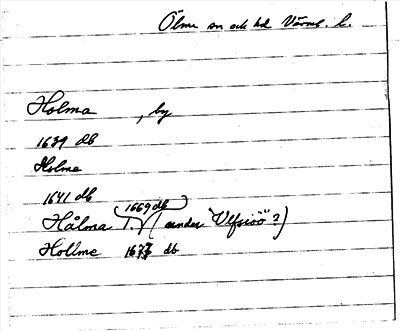 Ölme sn och hd Värml. l.
Holma , by
1639 db
Holma
1641 db
1669 db
Hålma T.V ( under "Ulfsiöö" ? )
Hollme 1677 db